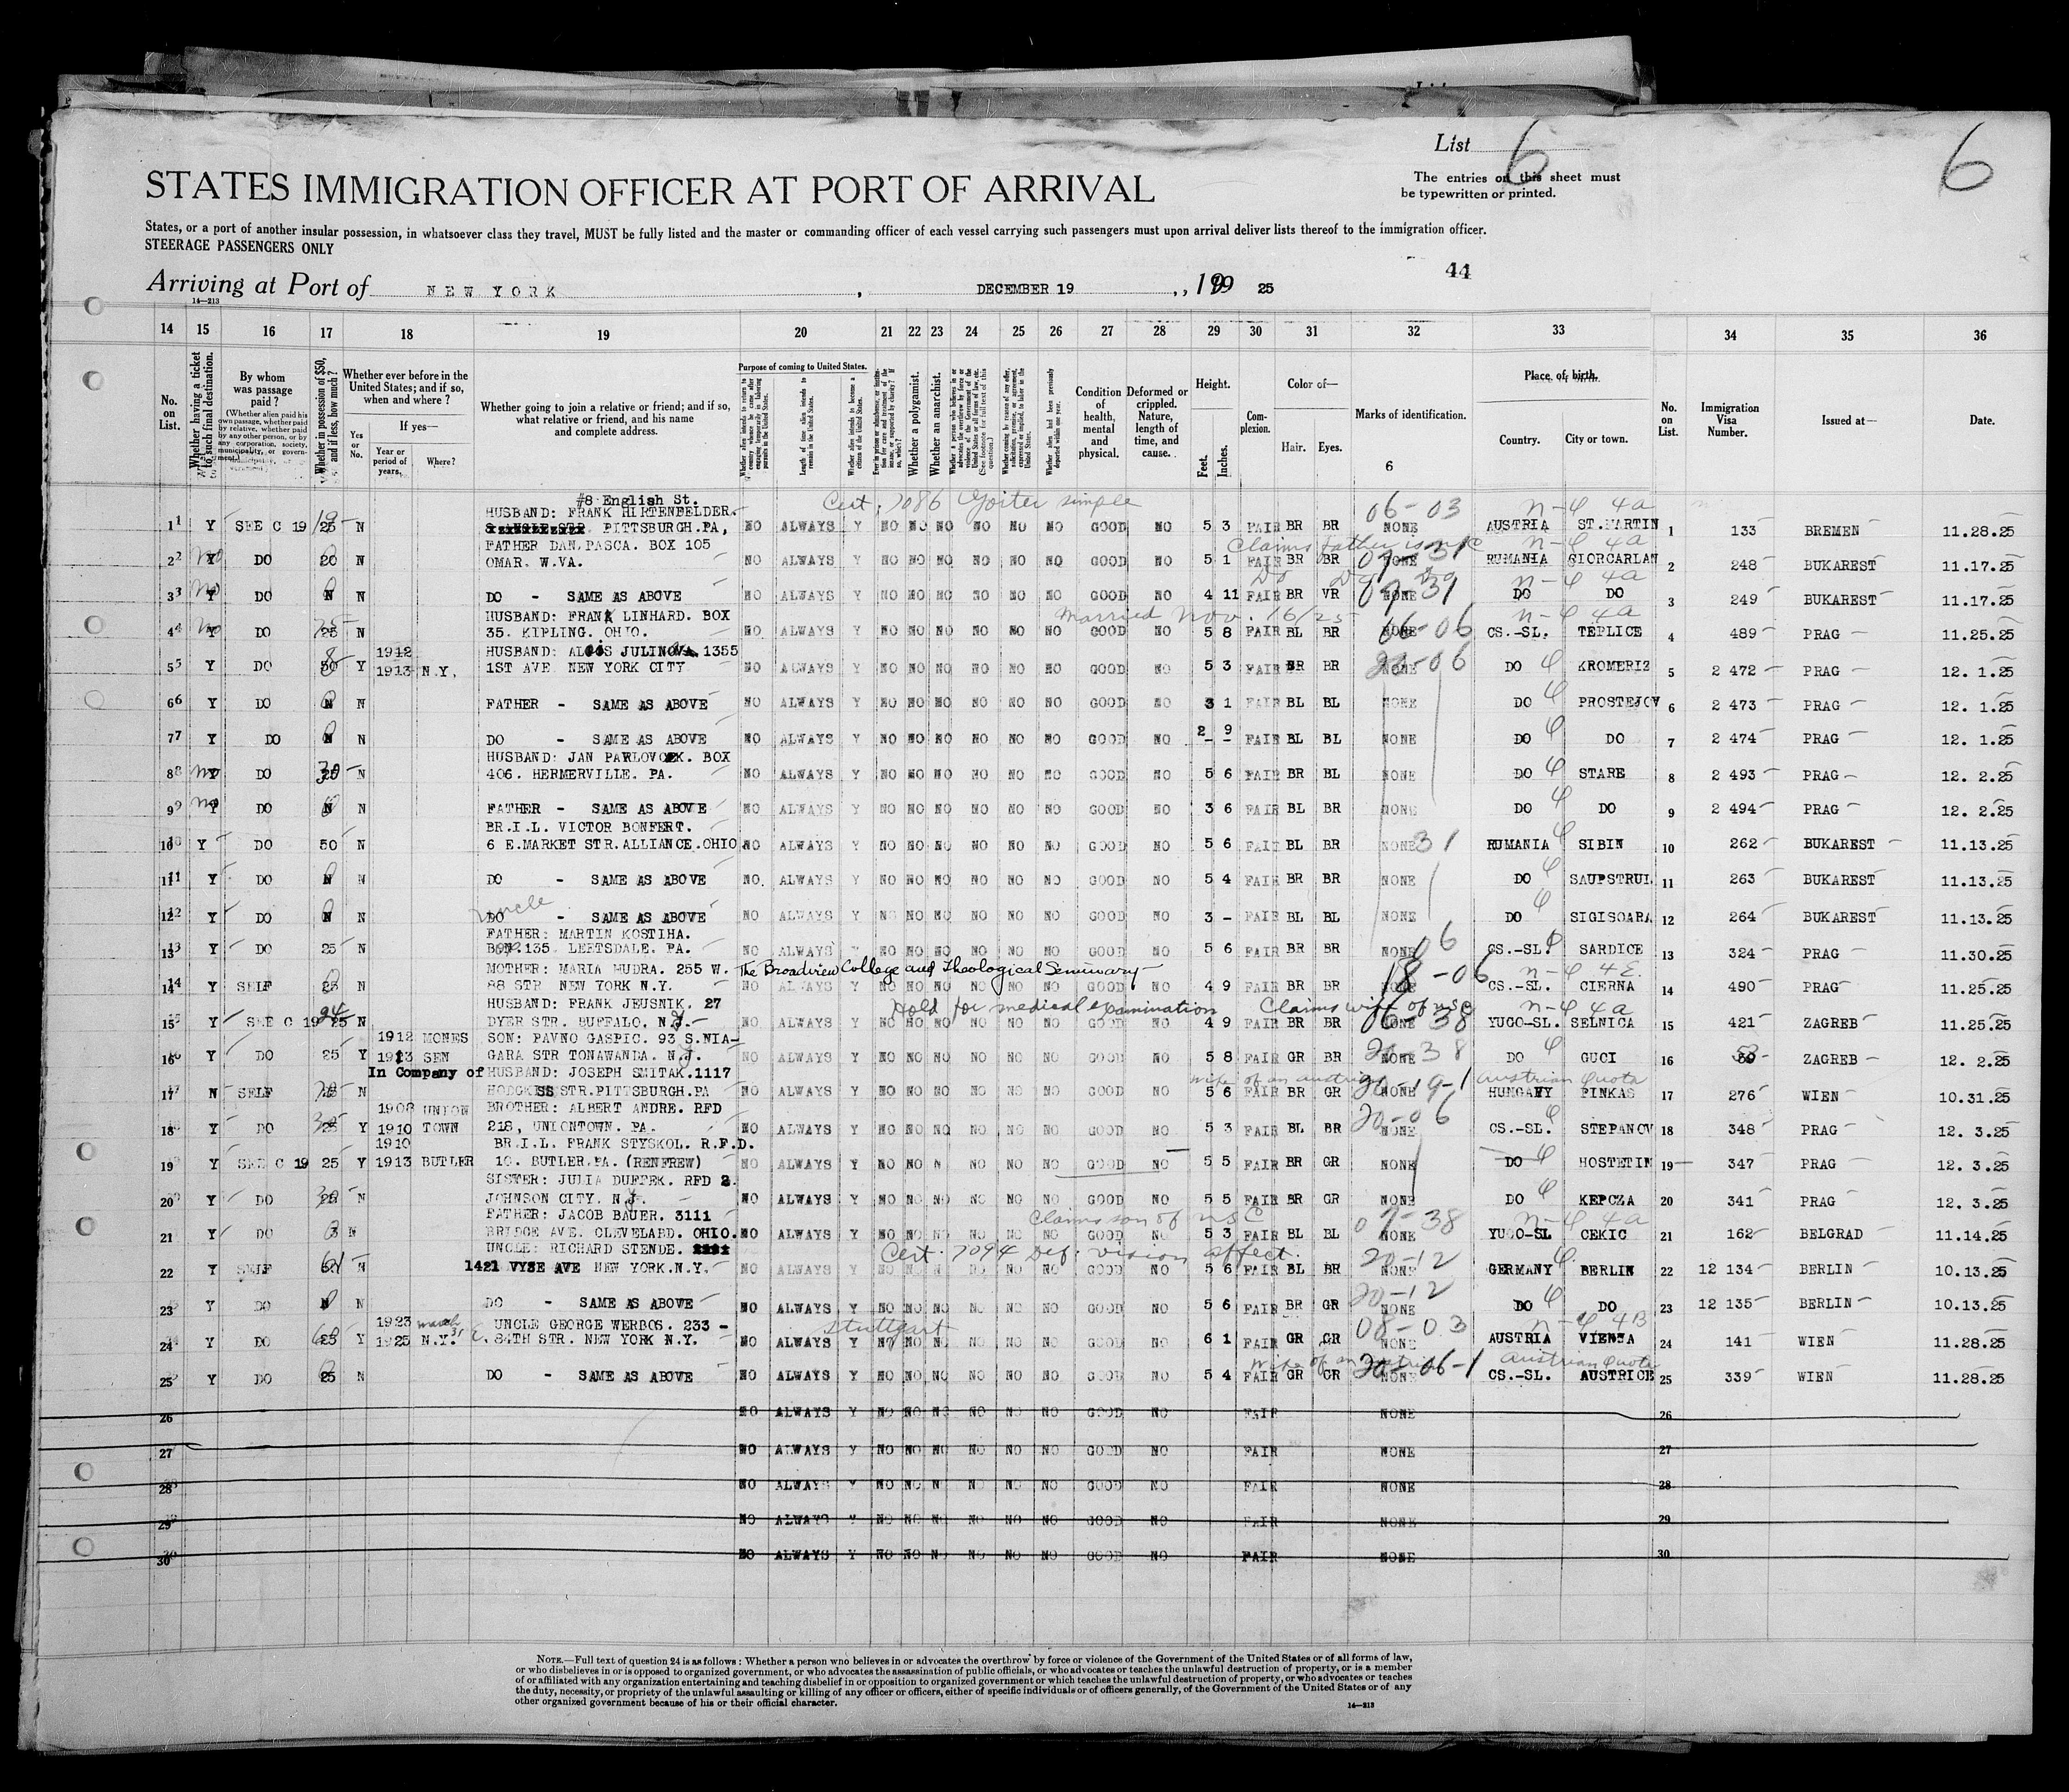 List 6
6
The entries on this sheet must
be typewritten or printed.
STATES IMMIGRATION OFFICER AT PORT OF ARRIVAL
States, or a port of another insular possession, in whatsoever class they travel, MUST be fully listed and the master or commanding officer of each vessel carrying such passengers must upon arrival deliver lists thereof to the immigration officer.
STEERAGE PASSENGERS ONLY
44
Arriving at Port of NEW YORK, DECEMBER 19, 19 25
14—213
14 15 16 17 18 19 20 21 22 23 24 25 26 27 28 29 30 31 32 33 34 35 36
No. on List.
Whether having a ticket to such final destination.
By whom was passage paid?
(Whether alien paid his own passage, whether paid by relative, whether paid by any other person, or by any corporation, society, municipality, or government.)
Whether in possession of $50, and if less, how much?
Whether ever before in the United States; and if so, when and where?
If yes—
Yes or No.
Year or period of years.
Where?
Whether going to join a relative or friend; and if so, what relative or friend, and his name and complete address.
Purpose of coming to United States.
Whether alien intends to return to country whence he came after engaging temporarily in laboring pursuits in the United States.
Length of time alien intends to remain in the United States.
Whether alien intends to become a citizen of the United States.
Whether a polygamist.
Whether an anarchist.
Condition of health, mental and physical.
Deformed or crippled. Nature, length of time, and cause.
Height.
Feet. Inches.
Complexion.
Color of—
Hair. Eyes.
Marks of identification.
6
Place of birth.
Country. City or town.
No. on List.
Immigration Visa Number.
Issued at—
Date.
#8 English St. Cert. 7086 Goiter simple 06-03 n-4 4a
HUSBAND: FRANK HIRTENFELDER.
1 Y SEE C 19 25 N PITTSBURGH.PA, NO ALWAYS Y NO NO NO NO NO NO GOOD NO 5 3 FAIR BR BR NONE AUSTRIA ST.MARTIN 1 133 BREMEN 11.28.25
FATHER DAN.PASCA. BOX 105 Claims father is n-4 4a
2 No Y DO 20 N OMAR. W.VA. NO ALWAYS Y NO NO NO NO NO NO GOOD NO 5 1 FAIR BR BR NONE RUMANIA GIORCARLAN 2 248 BUKAREST 11.17.25
n-4 4a
3 No Y DO N N DO - SAME AS ABOVE NO ALWAYS Y NO NO NO NO NO NO GOOD NO 4 11 FAIR BR VR NONE DO DO 3 249 BUKAREST 11.17.25
HUSBAND: FRANK LINHARD. BOX Married Nov. 16/25 n-4 4a
4 No Y DO 25 N 35. KIPLING. OHIO. NO ALWAYS Y NO NO NO NO NO NO GOOD NO 5 8 FAIR BL BR NONE 06-06 CS.-SL. TEPLICE 4 489 PRAG 11.25.25
1912 HUSBAND: ALOIS JULINOVA. 1355
5 Y DO 50 Y 1913 N.Y. 1ST AVE NEW YORK CITY NO ALWAYS Y NO NO NO NO NO NO GOOD NO 5 3 FAIR BR BR NONE 20-06 DO KROMERIZ 5 2 472 PRAG 12. 1.25
6 Y DO N N FATHER - SAME AS ABOVE NO ALWAYS Y NO NO NO NO NO NO GOOD NO 3 1 FAIR BL BL NONE DO PROSTEJOV 6 2 473 PRAG 12. 1.25
7 Y DO N N DO - SAME AS ABOVE NO ALWAYS Y NO NO NO NO NO NO GOOD NO 2 9 FAIR BL BL NONE DO DO 7 2 474 PRAG 12. 1.25
HUSBAND: JAN PAVLOVCEK. BOX
8 No Y DO 25 N 406. HERMERVILLE. PA. NO ALWAYS Y NO NO NO NO NO NO GOOD NO 5 6 FAIR BR BL NONE DO STARE 8 2 493 PRAG 12. 2.25
9 No Y DO N N FATHER - SAME AS ABOVE NO ALWAYS Y NO NO NO NO NO NO GOOD NO 3 6 FAIR BL BR NONE DO DO 9 2 494 PRAG 12. 2.25
BR.I.L. VICTOR BONFERT.
10 Y DO 50 N 6 E.MARKET STR.ALLIANCE.OHIO NO ALWAYS Y NO NO NO NO NO NO GOOD NO 5 6 FAIR BL BR NONE 31 RUMANIA SIBIN 10 262 BUKAREST 11.13.25
11 Y DO N N DO - SAME AS ABOVE NO. ALWAYS Y NO NO NO NO NO NO GOOD NO 5 4 FAIR BR BR NONE DO SAUPSTRUL 11 263 BUKAREST 11.13.25
uncle
12 Y DO N N DO - SAME AS ABOVE NO ALWAYS Y NO NO NO NO NO NO GOOD NO 3 - FAIR BL BL NONE DO SIGISOARA 12 264 BUKAREST 11.13.25
FATHER: MARTIN KOSTIHA.
13 Y DO 25 N BOX.135 LEETSDALE. PA. NO ALWAYS Y NO NO NO NO NO NO GOOD NO 5 6 FAIR BR BR NONE 06 CS.-SL. SARDICE 13 324 PRAG 11.30.25
MOTHER: MARIA HUDRA. 255 W. The Broadview College and Theological Seminary 18-06 n-4 4E.
14 Y SELF 25 N 88 STR NEW YORK N.Y. NO ALWAYS Y NO NO NO NO NO NO GOOD NO 4 9 FAIR BR BR NONE CS.-SL. CIERNA 14 490 PRAG 11.25.25
HUSBAND: FRANK JEUSNIK. 27 Hold for medical examination Claims wife of USC n-4 4a
15 Y SEE C 19 25 N DYER STR. BUFFALO. N.Y. NO ALWAYS Y NO NO NO NO NO NO GOOD NO 4 9 FAIR BR BR NONE 06-38 YUGO-SL. SELNICA 15 421 ZAGREB 11.25.25
1912 MONES SON: PAVNO GASPIC. 93 S.NIA-
16 Y DO 25 Y 1913 SEN GARA STR TONAWANDA. N.Y. NO ALWAYS Y NO NO NO NO NO NO GOOD NO 5 8 FAIR GR BR NONE 20-38 DO GUCI 16 ZAGREB 12. 2.25
In Company of HUSBAND: JOSEPH SMITAK.1117 wife of an Austrian 20-19-1 Austrian Quota
17 N SELF 25 N HODGKISS STR.PITTSBURGH.PA NO ALWAYS Y NO NO NO NO NO NO GOOD NO 5 6 FAIR BR GR NONE HUNGARY PINKAS 17 276 WIEN 10.31.25
1908 UNION BROTHER: ALBERT ANDRE. RFD 20-06
18 Y DO 25 Y 1910 TOWN 218, UNIONTOWN. PA. NO ALWAYS Y NO NO NO NO NO NO GOOD NO 5 3 FAIR BL BR NONE CS.-SL. STEPANOV 18 348 PRAG 12. 3.25
1910 BR.I.L. FRANK STYSKOL. R.F.D.
19 Y SEE C 19 25 Y 1913 BUTLER 10. BUTLER.PA. (RENFREW) NO ALWAYS Y NO NO N NO NO NO GOOD NO 5 5 FAIR BR GR NONE DO HOSTETIN 19 347 PRAG 12. 3.25
SISTER: JULIA DUFFEK. RFD 2.
20 Y DO 25 N JOHNSON CITY. N.Y. NO ALWAYS Y NO NO NO NO NO NO GOOD NO 5 5 FAIR BR GR NONE DO KEPCZA 20 341 PRAG 12. 3.25
FATHER: JACOB BAUER. 3111 Claims son of USC 07-38 n-4 4a
21 Y DO 3 N BRIDGE AVE. CLEVELABD. OHIO. NO ALWAYS Y NO NO NO NO NO NO GOOD NO 5 3 FAIR BL BL NONE YUGO-SL CEKIC 21 162 BELGRAD 11.14.25
UNCLE: RICHARD STENDE. Cert. 7094 Def. vision affect. 20-12
22 Y SELF N 1421 VYSE AVE NEW YORK.N.Y. NO ALWAYS Y NO NO N NO NO NO GOOD NO 5 6 FAIR BL BR NONE GERMANY BERLIN 22 12 134 BERLIN 10.13.25
20-12
23 Y DO N N DO - SAME AS ABOVE NO ALWAYS Y NO NO NO NO NO NO GOOD NO 5 6 FAIR BR GR NONE DO DO 23 12 135 BERLIN 10.13.25
1923 March 31 UNCLE GEORGE WERBOS. 233 - Stuttgart 08-03 n-4 4B
24 Y DO 25 Y 1925 N.Y. E. 84TH STR. NEW YORK N.Y. NO ALWAYS Y NO NO NO NO NO NO GOOD NO 6 1 FAIR GR GR NONE AUSTRIA VIENNA 24 141 WIEN 11.28.25
Wife of an Austrian 20-06-1 Austrian Quota
25 Y DO 25 N DO - SAME AS ABOVE NO ALWAYS Y NO NO NO NO NO NO GOOD NO 5 4 FAIR GR GR NONE CS.-SL. AUSTRICE 25 339 WIEN 11.28.25
26 NO ALWAYS Y NO NO NO NO NO NO GOOD NO FAIR NONE 26
27 NO ALWAYS Y NO NO NO NO NO NO GOOD NO FAIR NONE 27
28 NO ALWAYS Y NO NO N NO NO NO GOOD NO FAIR NONE 28
29 NO ALWAYS Y NO NO N NO NO NO GOOD NO FAIR NONE 29
30 NO ALWAYS Y NO NO N NO NO NO GOOD NO FAIR NONE 30
NOTE.—Full text of question 24 is as follows: Whether a person who believes in or advocates the overthrow by force or violence of the Government of the United States or of all forms of law,
or who disbelieves in or is opposed to organized government, or who advocates the assassination of public officials, or who advocates or teaches the unlawful destruction of property, or is a member
of or affiliated with any organization entertaining and teaching disbelief in or opposition to organized government or which teaches the unlawful destruction of property, or who advocates or teaches
the duty, necessity, or propriety of the unlawful assaulting or killing of any officer or officers, either of specific individuals or of officers generally, of the Government of the United States or of any
other organized government because of his or their official character.
14—213